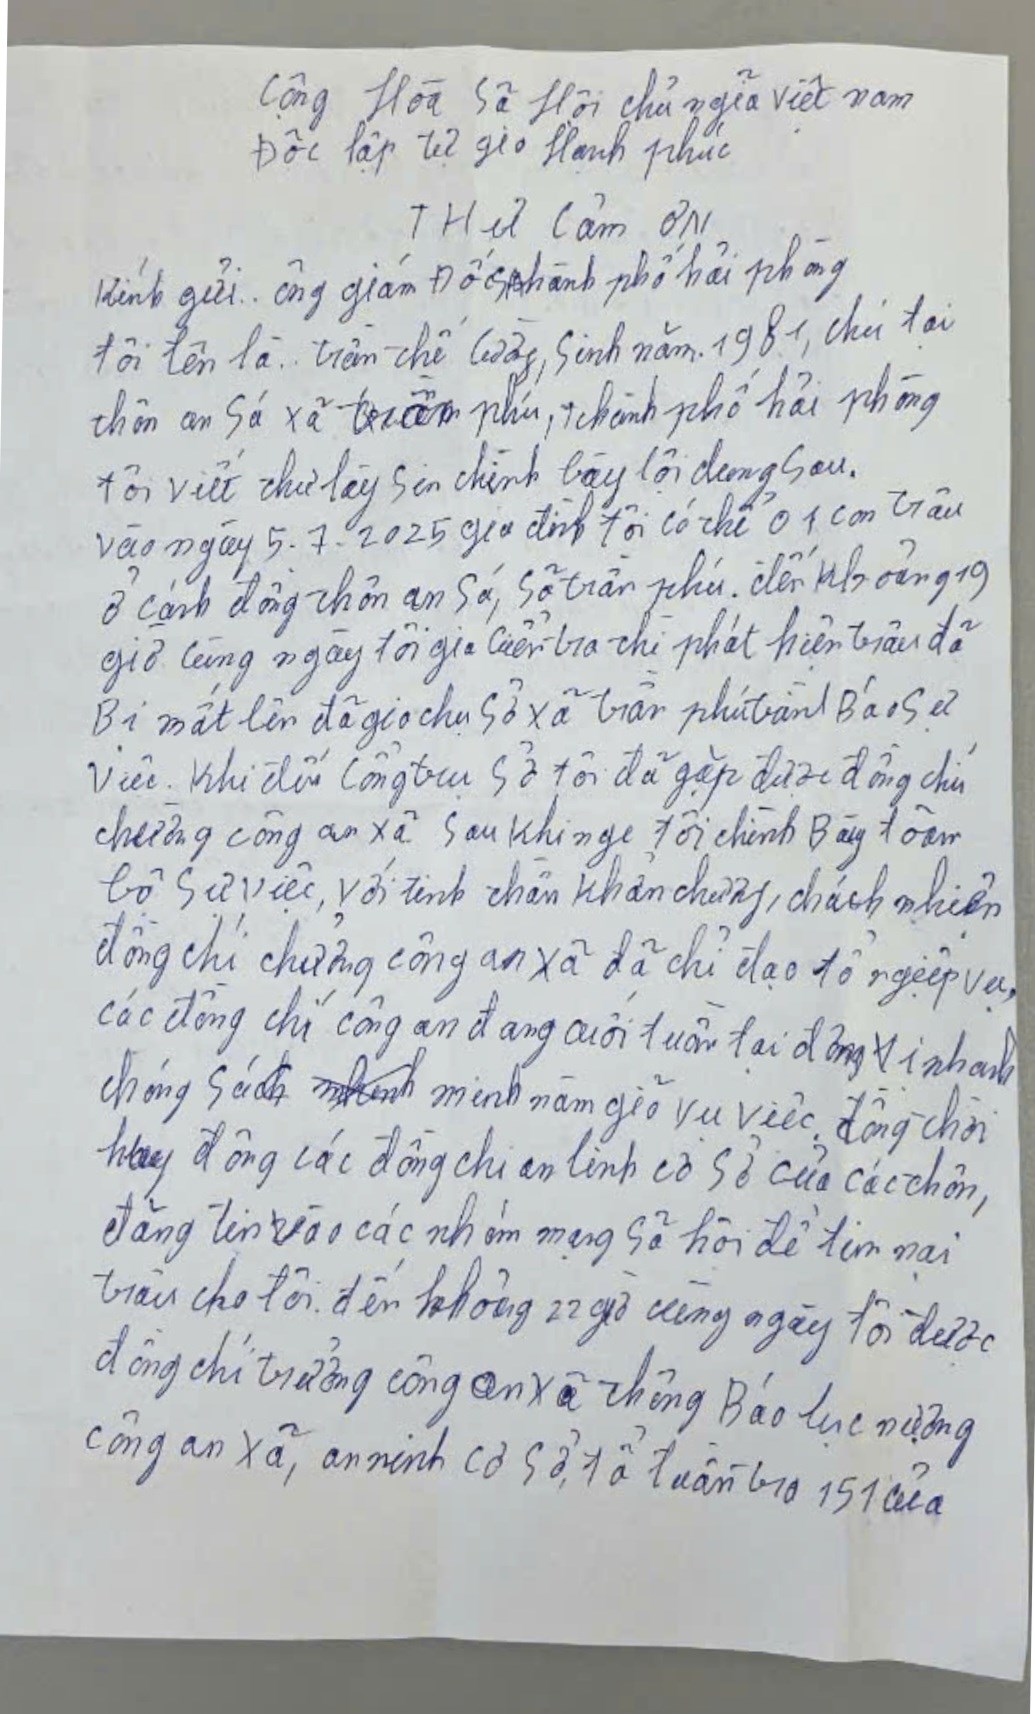 Cộng Hòa Sã Hội chủ ngiã việt nam
Độc lập tự gio Hạnh phúc
THƯ Cảm ƠN
Kính gửi.. ông giám Đốc thành phố hải phòng
tôi tên là.. trần chế, sinh năm. 1981, chú tại
thôn an Sá xã trần phú, thành phố hải phòng
tôi viết thư lày sin chình bày lội dung sau.
vào ngày 5.7.2025 gia đình tôi có thể 01 con trâu
ở cánh đồng thôn an Sá, Sã trần phú. đến khoảng 19
giờ cùng ngày tôi gia kiểm tra thì phát hiện trâu đã
Bị mất lên đã gio chụ Sở xã trần phú trình Báo Sự
việc. khi đến công trụ Sở tôi đã gặp được đồng chí
chưởng công an xã sau khi nge tôi chình Bày toàn
bộ Sự việc, với tinh thần khẩn chương, chách nhiện
đồng chí chưởng công an xã đã chỉ đạo tổ ngiệp vụ,
các đồng chí công an đang cuối tuần tại đơng vị nhanh
chóng Sách minh nắm giõ vụ việc. đồng thời
huy động các đồng chi an linh cơ Sở của các thôn,
đăng tin vào các nhóm mạng Sã hội để tìm nại
trâu cho tôi. đến khoảng 22 giờ cùng ngày tôi được
đồng chí trưởng công an xã thông Báo lực nượng
công an xã, an ninh cơ Sở, tổ tuần tra 151 của